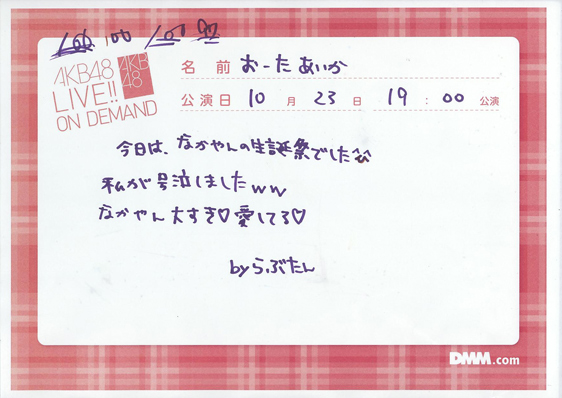 100
AKB48
LIVE!!
ON DEMAND
AKB
48
名前 おーた あいか
公演日 10月 23日 19:00 公演
今日は、なかやんの生誕祭でした
私が号泣しましたww
なかやん大すき♡愛してる♡
byらぶたん
DMM.com